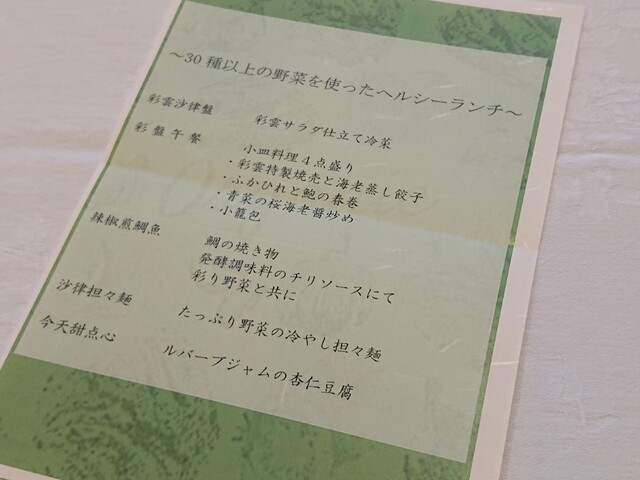 ～30種以上の野菜を使ったヘルシーランチ～
彩雲沙律盤 彩雲サラダ仕立て冷菜
彩盤午餐 小皿料理４点盛り
・彩雲特製焼売と海老蒸し餃子
・ふかひれと鮑の春巻
・青菜の桜海老醤炒め
・小籠包
辣椒煎鯛魚 鯛の焼き物
発酵調味料のチリソースにて
彩り野菜と共に
沙律担々麺 たっぷり野菜の冷やし担々麺
今天甜点心 ルバーブジャムの杏仁豆腐